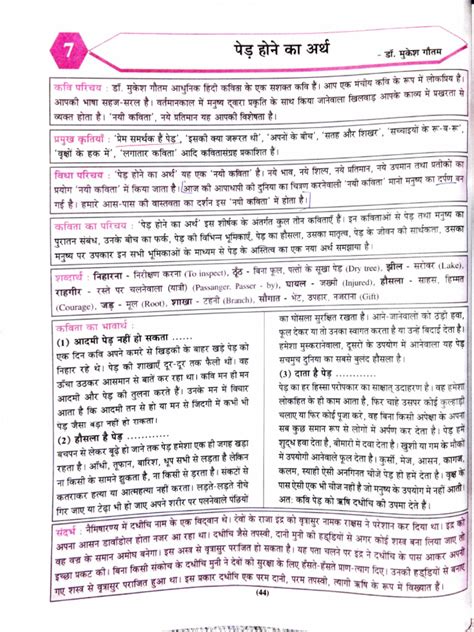 7
पेड़ होने का अर्थ
- डॉ. मुकेश गौतम
कवि परिचय : डॉ. मुकेश गौतम आधुनिक हिंदी कविता के एक सशक्त कवि है। आप एक मंचीय कवि के रूप में लोकप्रिय है।
आपकी भाषा सहज-सरल है। वर्तमानकाल में मनुष्य द्वारा प्रकृति के साथ किया जानेवाला खिलवाड़ आपके काव्य में प्रखरता से
व्यक्त होता है। 'नयी कविता', नये प्रतिमान यह आपकी विशेषता है।
प्रमुख कृतियाँ : 'प्रेम समर्थक है पेड़', 'इसकी क्या जरूरत थी', 'अपनों के बीच', 'सतह और शिखर', 'सच्चाइयों के रू-ब-रू'
'वृक्षों के हक में', 'लगातार कविता' आदि कवितासंग्रह प्रकाशित है।
विधा परिचय : 'पेड़ होने का अर्थ' यह एक 'नयी कविता' है। नये भाव, नये शिल्प, नये प्रतिमान, नये उपमान तथा प्रतीकों का
प्रयोग 'नयी कविता' में किया जाता है। आज की आपाधापी की दुनिया का चित्रण करनेवाली 'नयी कविता' मानो मनुष्य का दर्पण बन
गई है। हमारे आस-पास की वास्तवता का दर्शन इस 'नयी कविता' में होता है।
कविता का परिचय : 'पेड़ होने का अर्थ' इस शीर्षक के अंतर्गत कुल तीन कविताएँ है। इन कविताओं से पेड़ तथा मनुष्य का
पुरातन संबंध, उनके बीच का फर्क, पेड़ की विभिन्न भूमिकाएँ, पेड़ का हौसला, उसका मातृत्व, पेड़ के जीवन की सार्थकता,
मनुष्य पर उपकार इन सभी भूमिकाओं के माध्यम से पेड़ के अस्तित्व का एक नया अर्थ समझाया है।
शब्दार्थ : निहारना - निरीक्षण करना (To inspect), ठूँठ - बिना फूल, पत्तो के सूखा पेड़ (Dry tree), झील - सरोवर (Lake),
राहगीर - रस्ते पर चलनेवाला यात्री (Passanger, Passer - by), घायल - जख्मी (Injured), हौसला - साहस, हिम्मत
(Courage), जड़ - मूल (Root), शाखा - टहनी (Branch), सौगात - भेट, उपहार, नजराना (Gift)
कविता का भावार्थ :
(1) आदमी पेड़ नहीं हो सकता ......
एक दिन कवि अपने कमरे से खिडकी के बाहर खड़े पेड़ को
निहार रहे थे। पेड़ की शाखाएँ दूर-दूर तक फैली थीं। वह
ऊँचा उठकर आसमान से बाते कर रहा था। कवि मन ही मन
आदमी और पेड़ की तुलना करते हैं। उनके मन में विचार
आता है कि आदमी तन से हो या मन से जिंदगी में कभी भी
पेड़ जैसा बड़ा नहीं हो सकता।
(2) हौसला है पेड़ ......
बचपन से लेकर बुढ़े हो जाने तक पेड़ हमेशा एक ही जगह खड़ा
रहता है। आँधी, तूफान, बारिश, धूप सभी से लड़ता है लेकिन
न किसी के सामने झुकता है, ना किसी से डरता है। संकटो से
कतराकर हत्या या आत्महत्या नहीं करता। लड़ते-लड़ते नीचे
गिर जाए या ठूँठ भी हो जाए अपने शरीर पर पलनेवाले पंछियो
का घोसला सुरक्षित रखता है। आने-जानेवालो को ठंडी हवा,
फूल देकर या तो उनका स्वागत करता है या उन्हें बिदाई देता है।
हमेशा मुस्कुरानेवाला, दूसरे के उपयोग में आनेवाला यह पेड़
सचमुच दुनिया का सबसे बुलंद हौसला है।
(3) दाता है पेड़ ......
पेड़ का हर हिस्सा परोपकार का साक्षात् उदाहरण है। वह हमेशा
लोककल्याण का ही काम करता है, फिर चाहे उसपर कोई कुल्हाड़ी
चलाए या फिर कोई पूजा करे, वह बिना किसी अपेक्षा के अपना
सब कुछ समान रूप से लोगों में अर्पण कर देता है। पेड़ हमें
शुद्ध हवा देता है, बीमारी में दवा देता है। खुशी या गम के मौकों
में भी उपयोग में आनेवाले फूल देता है। कुर्सी, मेज, आसन, कागज,
कलम, स्याही ऐसी अनगिनत चीजें पेड़ हमे ही देता है। पेड़ की
एक भी चीज ऐसी नहीं है जो मनुष्य के उपयोग में नहीं आती
अत: कवि पेड़ को ऋषि दधीचि की उपमा देते हैं।
संदर्भ : नैमिषारण्य में दधीचि नाम के एक विद्वान थे। देवों के राजा इंद्र को वृत्रासुर नामक राक्षस ने परेशान कर दिया था। इंद्र को
अपना आसन डावाँडोल होता नजर आ रहा था। दधीचि जैसे तपस्वी, दानी मुनी की हड्डियों से अगर कोई शस्त्र बना दिया जाए तो
वह वज्र के समान अमोघ होगा। इस अस्त्र से वृत्रासुर पराजित हो सकता है। यह पता चलने पर इंद्र ने दधीचि के पास जाकर अपनी
इच्छा प्रकट की। बिना किसी संकोच दधीचि ने दुनिया की भलाई के लिए हँसते-हँसते प्राण-त्याग दिए। उनकी हड्डियों से बनाए
गए शस्त्र से वृत्रासुर पराजित हुआ था। इस प्रकार दधीचि एक परम दानी, परम तपस्वी, त्यागी ऋषि के रूप में विख्यात हैं।
(44)